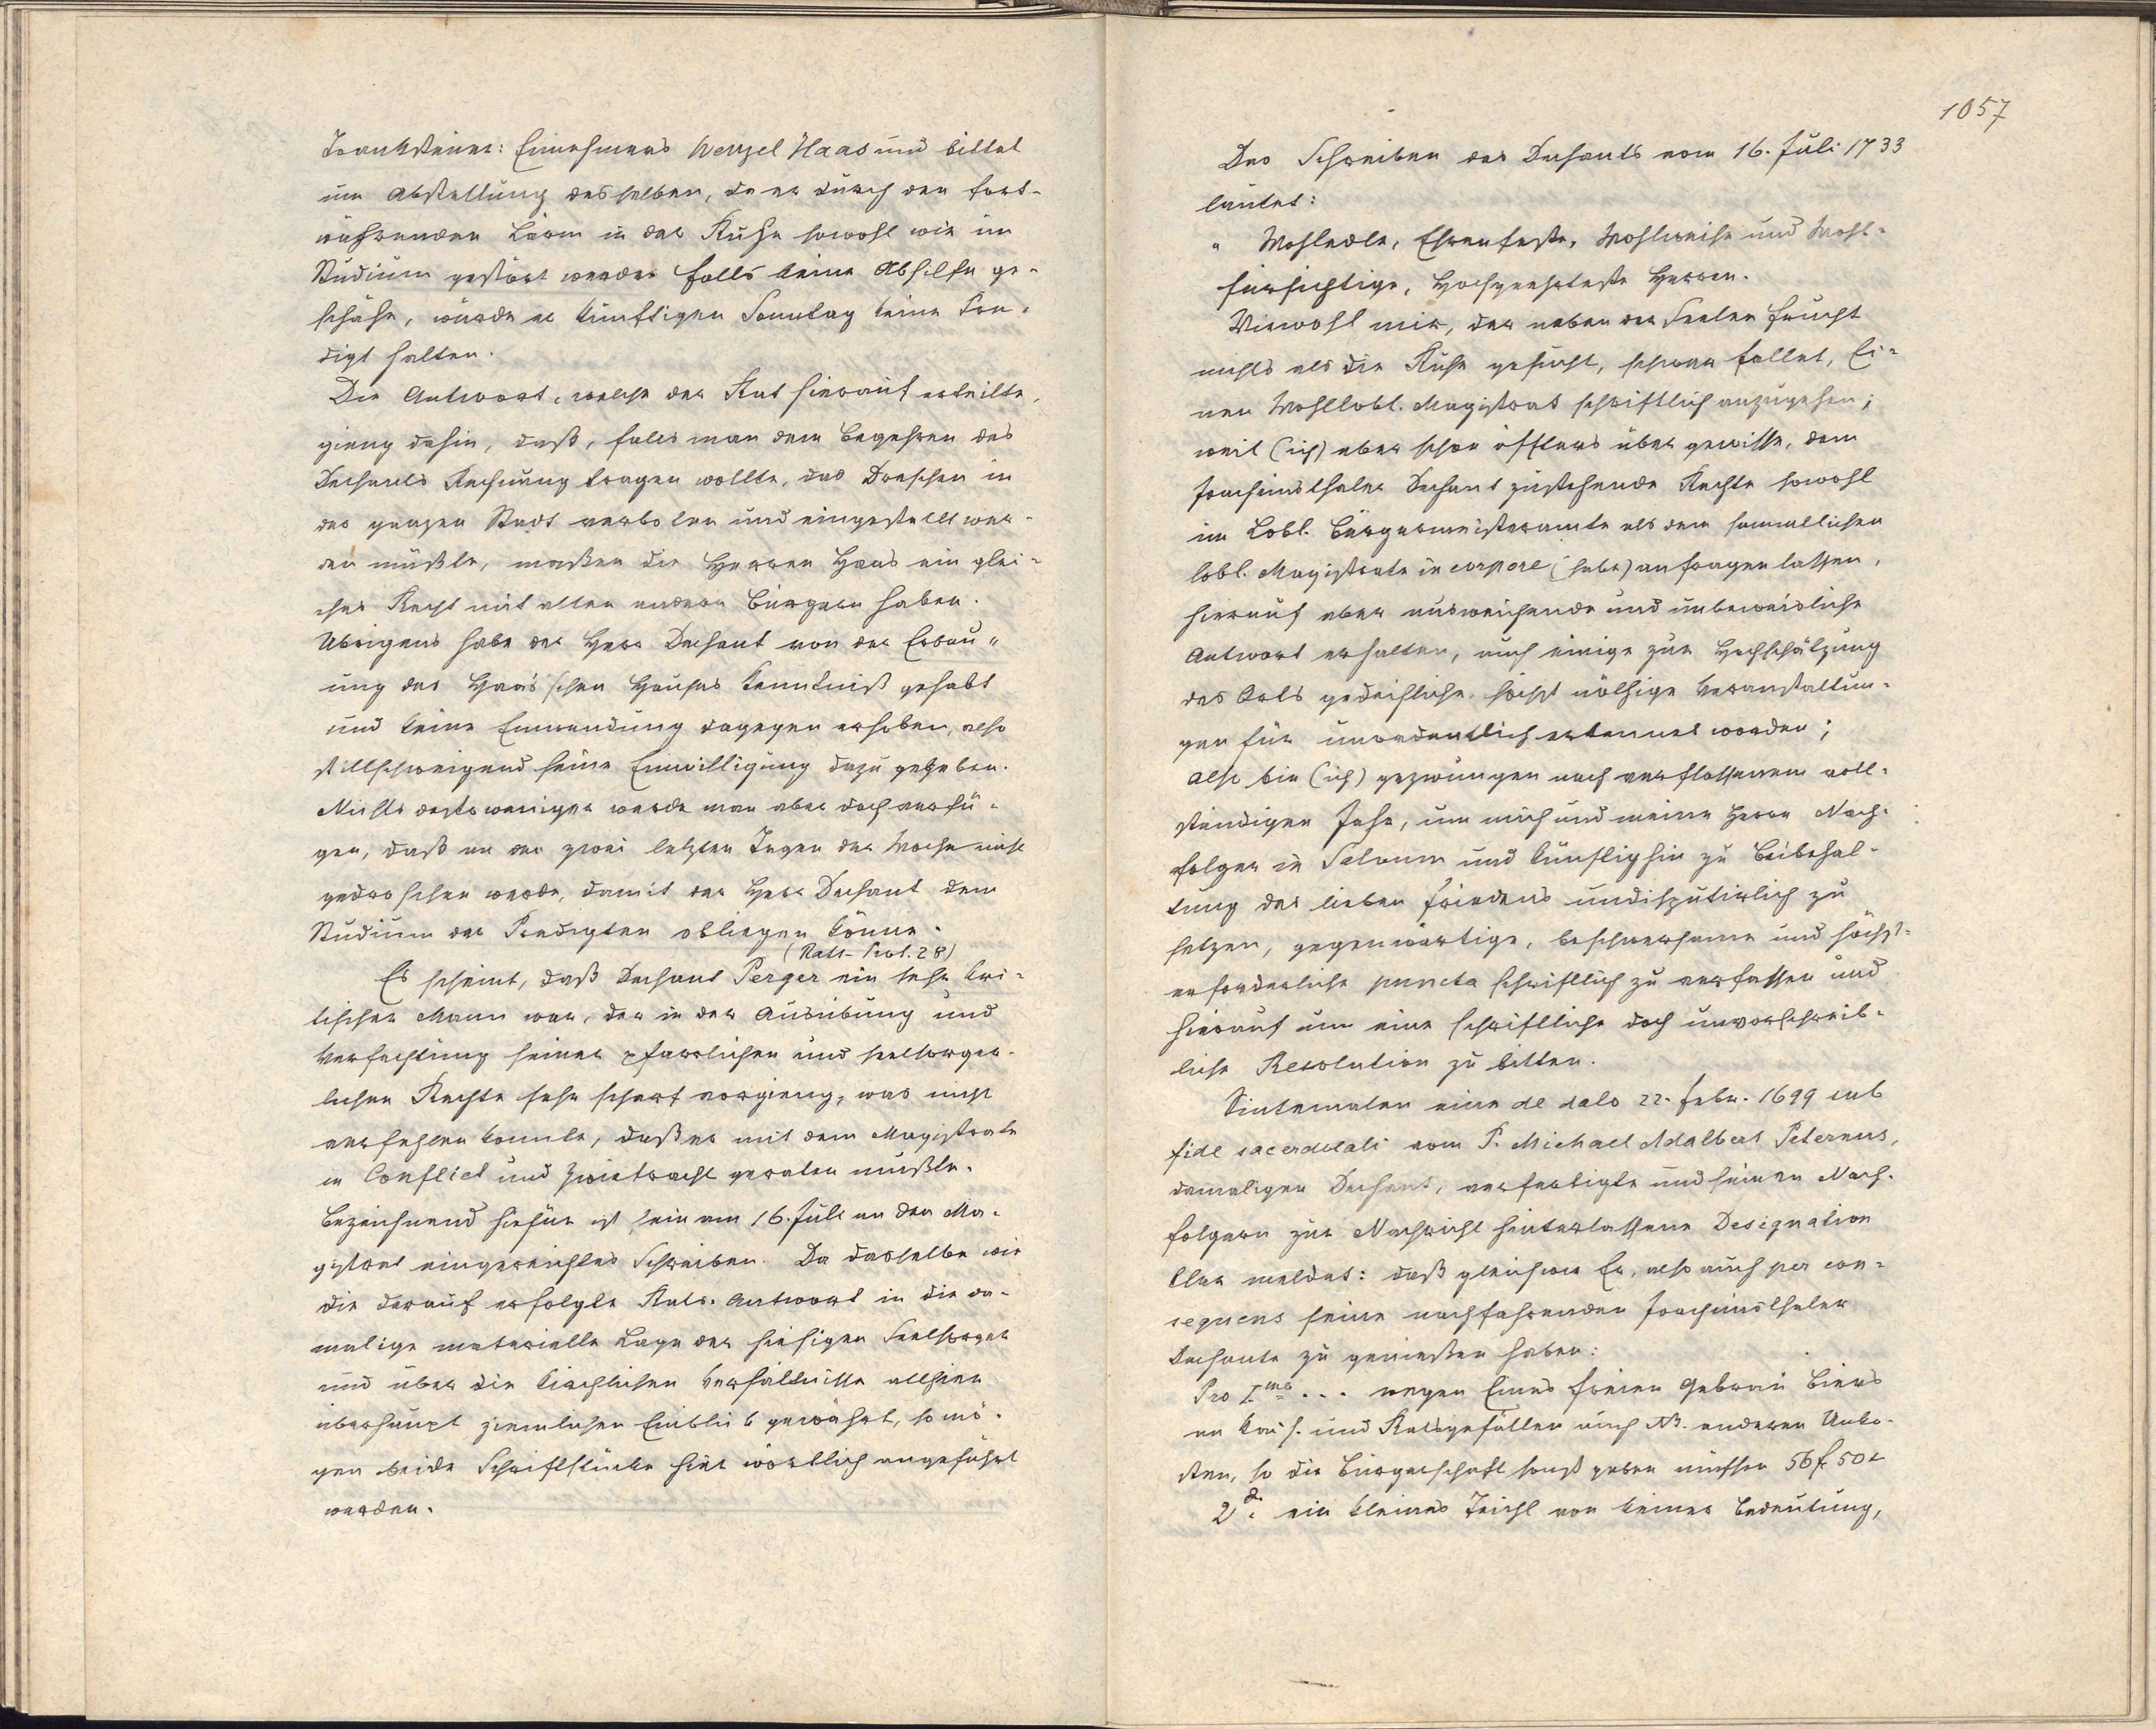 Tranksteuer-Einnehmers Wenzel Haas und bittet
um Abstellung desselben, da er durch den fort-
währenden Lärm in der Ruhe sowohl wie im
Studium gestört werde. Falls keine Abhilfe ge-
schähe, würde er künftigen Sonntag keine Pre-
digt halten.
Die Antwort, welche der Rat hierauf erteilte,
gieng dahin, daß, falls man dem Begehren des
Dechants Rechnung tragen wollte, das Dreschen in
der ganzen Stadt verboten und eingestellt wer-
den müßte, maßen die Herren Haas ein glei-
ches Recht mit allen andern Bürgern haben.
Übrigens habe der Herr Dechant von der Erbau-
ung des Haas'schen Hauses Kenntniß gehabt
und keine Einwendung dagegen erhoben, also
stillschweigend seine Einwilligung dazu gegeben.
Nichts destoweniger werde man aber doch verfü-
gen, daß an den zwei letzten Tagen der Woche nicht
gedroschen werde, damit der Herr Dechant dem
Studium der Predigten obliegen könne.
(Rats-Prot. 28)
Es scheint, daß Dechant Perger ein sehr kri-
tischer Mann war, der in der Ausübung und
Verfechtung seiner pfarrlichen und seelsorger-
lichen Rechte sehr scharf vorgieng, was nicht
verfehlen konnte, daß er mit dem Magistrate
in Conflict und Zwietracht geraten mußte.
Bezeichnend hiefür ist sein am 16. Juli an den Ma-
gistrat eingereichtes Schreiben. Da dasselbe wie
die darauf erfolgte Rats-Antwort in die da-
malige materielle Lage der hiesigen Seelsorger
und über die kirchlichen Verhältnisse allhier
überhaupt ziemlichen Einblick gewährt, so mö-
gen beide Schriftstücke hier wörtlich angeführt
werden.
1057
Das Schreiben des Dechants vom 16. Juli 1733
lautet:
" Wohledle, Ehrenfeste, Wohlweise und Wohl-
fürsichtige, Hochgeehrteste Herren.
Wiewohl mir, der neben der Seelen Frucht
nichts als die Ruhe gesucht, schwer fallet, Ei-
nen Wohllobl. Magistrat schriftlich anzugehen;
weil (ich) aber schon öffters über gewisse, dem
Joachimsthaler Dechant zustehende Rechte sowohl
im Lobl. Bürgermeisteramte als dem sammtlichen
lobl. Magistrate in corpore (habe) anfragen lassen,
hierauf aber ausweichende und unbeweisliche
Antwort erhalten, auch einige zur Hochschätzung
des Orts gedeihliche, höchst nöthige Veranstaltun-
gen für unordentlich erkennet worden;
also bin (ich) gezwungen nach verflossenem voll-
ständigen Jahr, um mich und meine Herrn Nach-
folger in Salvum und künftighin zu Beibehal-
tung des lieben Friedens undisputirlich zu
setzen, gegenwärtige, beschwersame und höchst-
erforderliche puncta schriftlich zu verfassen und
hierauf um eine schriftliche doch unvorschreib-
liche Resolution zu bitten.
Sintemalen eine de dato 22. Febr. 1699 sub
fide sacerdotali vom P. Michael Adalbert Peternus,
damaligen Dechant, verfertigte und seinen Nach-
folgern zur Nachricht hinterlassene Designation
klar meldet: daß gleichwie Er, also auch per con-
sequens seine nachfahrenden Joachimsthaler
Dechante zu genießen haben:
Pro Imo ... wegen Eines freien Gebräu Biers
an Kais. und Ratsgefällen auch NB. anderen Unko-
sten, so die Bürgerschaft sonst geben müssen 56 f 50 x
2do ein kleines Teichl von keiner Bedeutung,